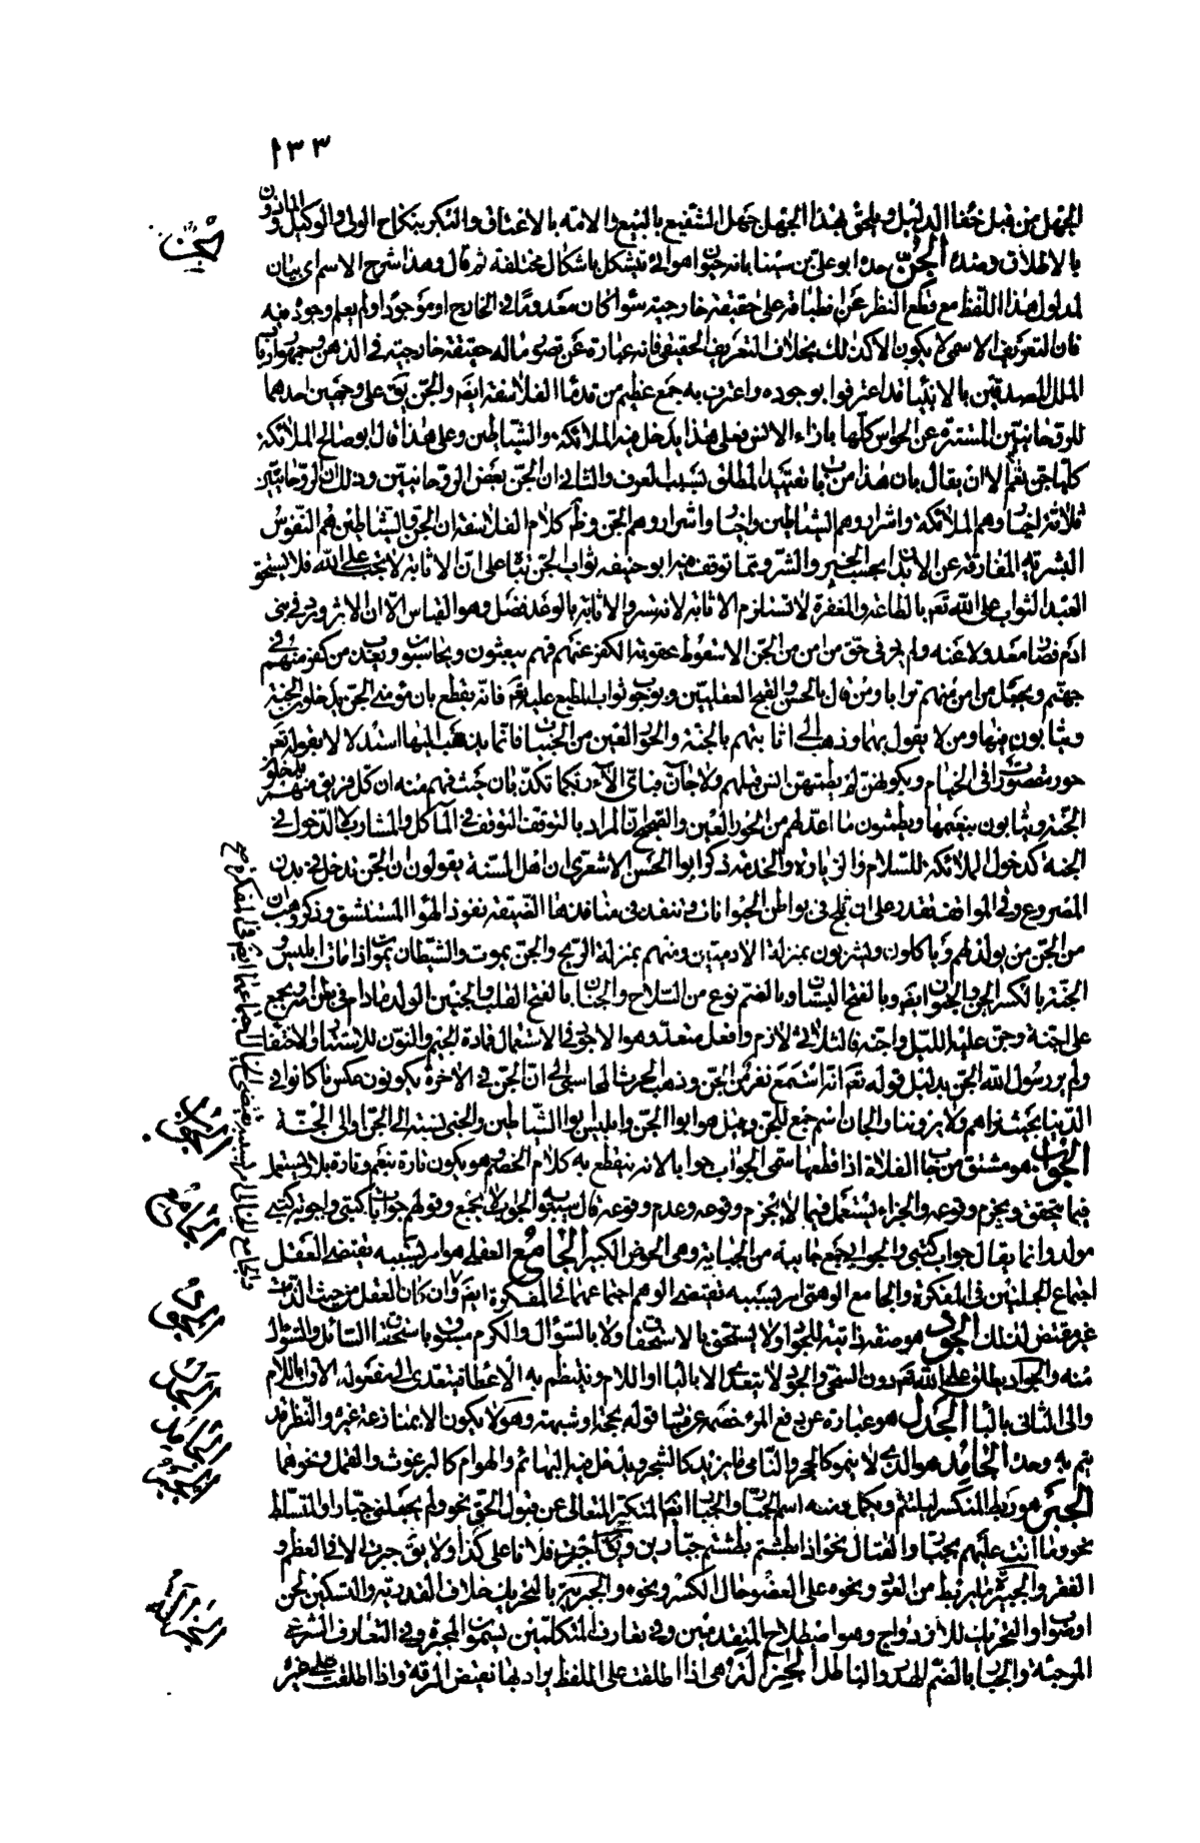 ١٣٣
الجهل من قبل خفاء الدليل ويلحق بهذا الجهل جهل الشفيع بالبيع والامة بالاعتاق والبكر بنكاح الولى والوكيل والماذون
بالاطلاق وضده الجن حده ابو على بن سينا بانه حيوان هوائى يتشكل باشكال مختلفة ثم قال وهذا شرح الاسم اى بيان
لمدلول هذا اللفظ مع قطع النظر عن انطباقه على حقيقة خارجية سواء كان معدوما فى الخارج او موجودا ولم يعلم وجوده فيه
فان التعريف الاسمى لا يكون الا كذلك بخلاف التعريف الحقيقى فانه عبارة عن تصوير ماله حقيقة خارجية فى الذهن وجمهور ارباب
الملل المصدقين بالانبياء قد اعترفوا بوجوده واعترف به جمع عظيم من قدماء الفلاسفة ايضا والجن يق على وجهين احدهما
للروحانيين المستترة عن الحواس كلها بازاء الانس فعلى هذا يدخل فيه الملائكة والشياطين وعلى هذا قال ابو صالح الملائكة
كلها جن نعم الا ان يقال بان هذا من باب تقييد المطلق بسبب العرف والثانى ان الجن بعض الروحانيين وذلك ان الروحانيين
ثلاثة اخيار وهم الملائكة واشرار وهم الشياطين واخيار واشرار وهم الجن وظ كلام الفلاسفة ان الجن والشياطين هم النفوس
البشرية المفارقة عن الابدان بحسب الخير والشر ومما توقف فيه ابو حنيفة ثواب الجن بناء على ان الاثابة لا تجب على الله فلا يستحق
العبد الثواب على الله تع بالطاعة والمغفرة لا تستلزم الاثابة لانه ستر والاثابة بالوعد فضل وهو القياس الا ان الاثر ورد فى بنى
ادم فصار معدولا عنه ولم يرد فى حق من امن من الجن الا سقوط عقوبة الكفر عنهم فهم يبعثون ويحاسبون ويعذب من كفر منهم فى
جهنم ويجعل من امن منهم ترابا ومن قال بالحسن والقبح العقليين وبوجوب ثواب المطيع عليه تع فانه يقطع بان مؤمنى الجن يدخلون الجنة
ويثابون فيها ومن لا يقول بهما وذهب الى اثابتهم بالجنة والحور العين من الجنيات فانما يذهب اليها استدلالا بقوله تع
حور مقصورات فى الخيام وبكونهن لم يطمثهن انس قبلهم ولا جان فباى الاء ربكما تكذبان حيث فهم منه ان كل فريق منهم يدخلون
الجنة ويثابون بنعيمها ويطمثون ما اعد لهم من الحور العين والصحيح ان المراد بالتوقف التوقف فى المآكل والمشارب لا الدخول فى
الجنة كدخول الملائكة للسلام والزيارة والخدمة ذكر ابو الحسن الاشعرى ان اهل السنة يقولون ان الجن تدخل فى بدن
المصروع وفى المواقف تقدر على ان تلج فى بواطن الحيوانات وتنفذ فى منافذها الضيقة نفوذ الهواء المستنشق وذكر وهب ان
من الجن من يولد لهم وياكلون ويشربون بمنزلة الادميين ومنهم بمنزلة الريح والجن يموت والشيطان يموت اذا مات ابليس و
الجنة بالكسر الجن والجنون ايضا وبالفتح البستان وبالضم نوع من السلاح والجنان بالفتح القلب والجنين الولد مادام فى بطن امه ويجمع
على اجنة وجن عليه الليل واجنه فالثلاثى لازم وافعل متعد وهو الاجود فى الاستعمال فمادة الجيم والنون للاستتار والاختفاء
ولم ير رسول الله الجن بدليل قوله تع انه استمع نفر من الجن وذهب الحارث المحاسبى الى ان الجن فى الآخرة يكونون عكس ما كانوا فى
الدنيا بحيث نراهم ولا يروننا والجان اسم جمع للجن وقيل هو ابو الجن وابليس ابو الشياطين والجنى نسبة الى الجن او الى الجنة
الجواب هو مشتق من جاب الفلاة اذا قطعها سمى الجواب جوابا لانه ينقطع به كلام الخصم وهو يكون تارة بنعم وتارة بلا ويستعمل
فيما يتحقق ويجزم وقوعه والجزاء يستعمل فيما لا يجزم وقوعه وعدم وقوعه قال سيبويه الجواب لا يجمع وقولهم جوابات كتبى واجوبة كتبى
مولد وانما يقال جواب كتبى والجوابى جمع جابية من الجباية وهى الحوض الكبير الجامع العقلى هو امر بسببه يقتضى العقل
اجتماع الجملتين فى المفكرة والجامع الوهمى امر بسببه يقتضى الوهم اجتماعهما فى المفكرة ايضا وان كان العقل من حيث الذات
غير مقتض لذلك الجود هو صفة ذاتية للجواد ولا يستحق بالاستحقاق ولا بالسؤال والكرم مسبوق باستحقاق السائل والسؤال
منه والجواد يطلق على الله تع دون السخى والجود لا يتعدى الا بالباء او اللام وينتظم به الاعطاء فيتعدى الى مفعوله الاول باللام
والى الثانى بالباء الجدل هو عبارة عن دفع المرء خصمه عن فساد قوله بحجة او شبهة وهو لا يكون الا بمنازعة غيره والنظر قد
يتم به وحده الجامد هو الذى لا ينمو كالحجر والنامى ما يزيد كالشجر ويدخل فيه البهائم والهوام كالبرغوث والقمل ونحوهما
الجبر هو ربط المنكسر ليلتئم ويكمل ومنه اسم الجبار والجبار ايضا المتكبر المتعالى عن قبول الحق نحو ولم يجعلنى جبارا والمتسلط
نحو وما انت عليهم بجبار والقتال نحو اذا بطشتم بطشتم جبارين ويق اجبرت فلانا على كذا ولا يق جبرت الا فى العظم و
الفقر والجبيرة ما يربط من العود ونحوه على العضو حال الكسر ونحوه والجبرية بالتحريك خلاف القدرية والتسكين لحن
او صواب والتحريك للازدواج وهو اصطلاح المتقدمين وفى تعارف المتكلمين يسمون المجبرة وفى التعارف الشرعى
المرجئة والجبار بالضم الهدر والباطل الجزء الذى هى اذا اطلقت على اللفظ يراد بها نقيض الرقة واذا اطلقت على غيره
جن
الجواب
الجامع
الجود
الجدل
الجامد
الجبر